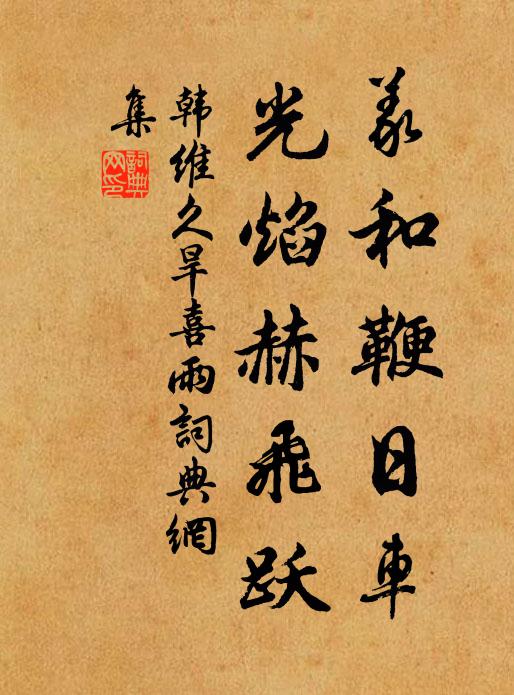 羲和鞭日車
光焰赫飛跃
韩維久旱喜雨詞典網
集
詞典網印